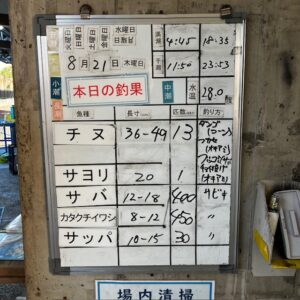 火曜日 日曜日 水曜日
月曜日 金曜日 土曜日
満潮 4:45 18:36
8月21日 木曜日
干潮 11:50 23:53
小潮
本日の釣果
中潮 水温 28.0
魚種 長寸(cm) 匹数(尾) 釣り方
チヌ 36-49 13 ダンゴ(コーン)
(オキアミ)
サヨリ 20 1
サバ 12-18 400 サビキ
カタクチイワシ 8-12 450 〃
サッパ 10-15 30 〃
場内清掃